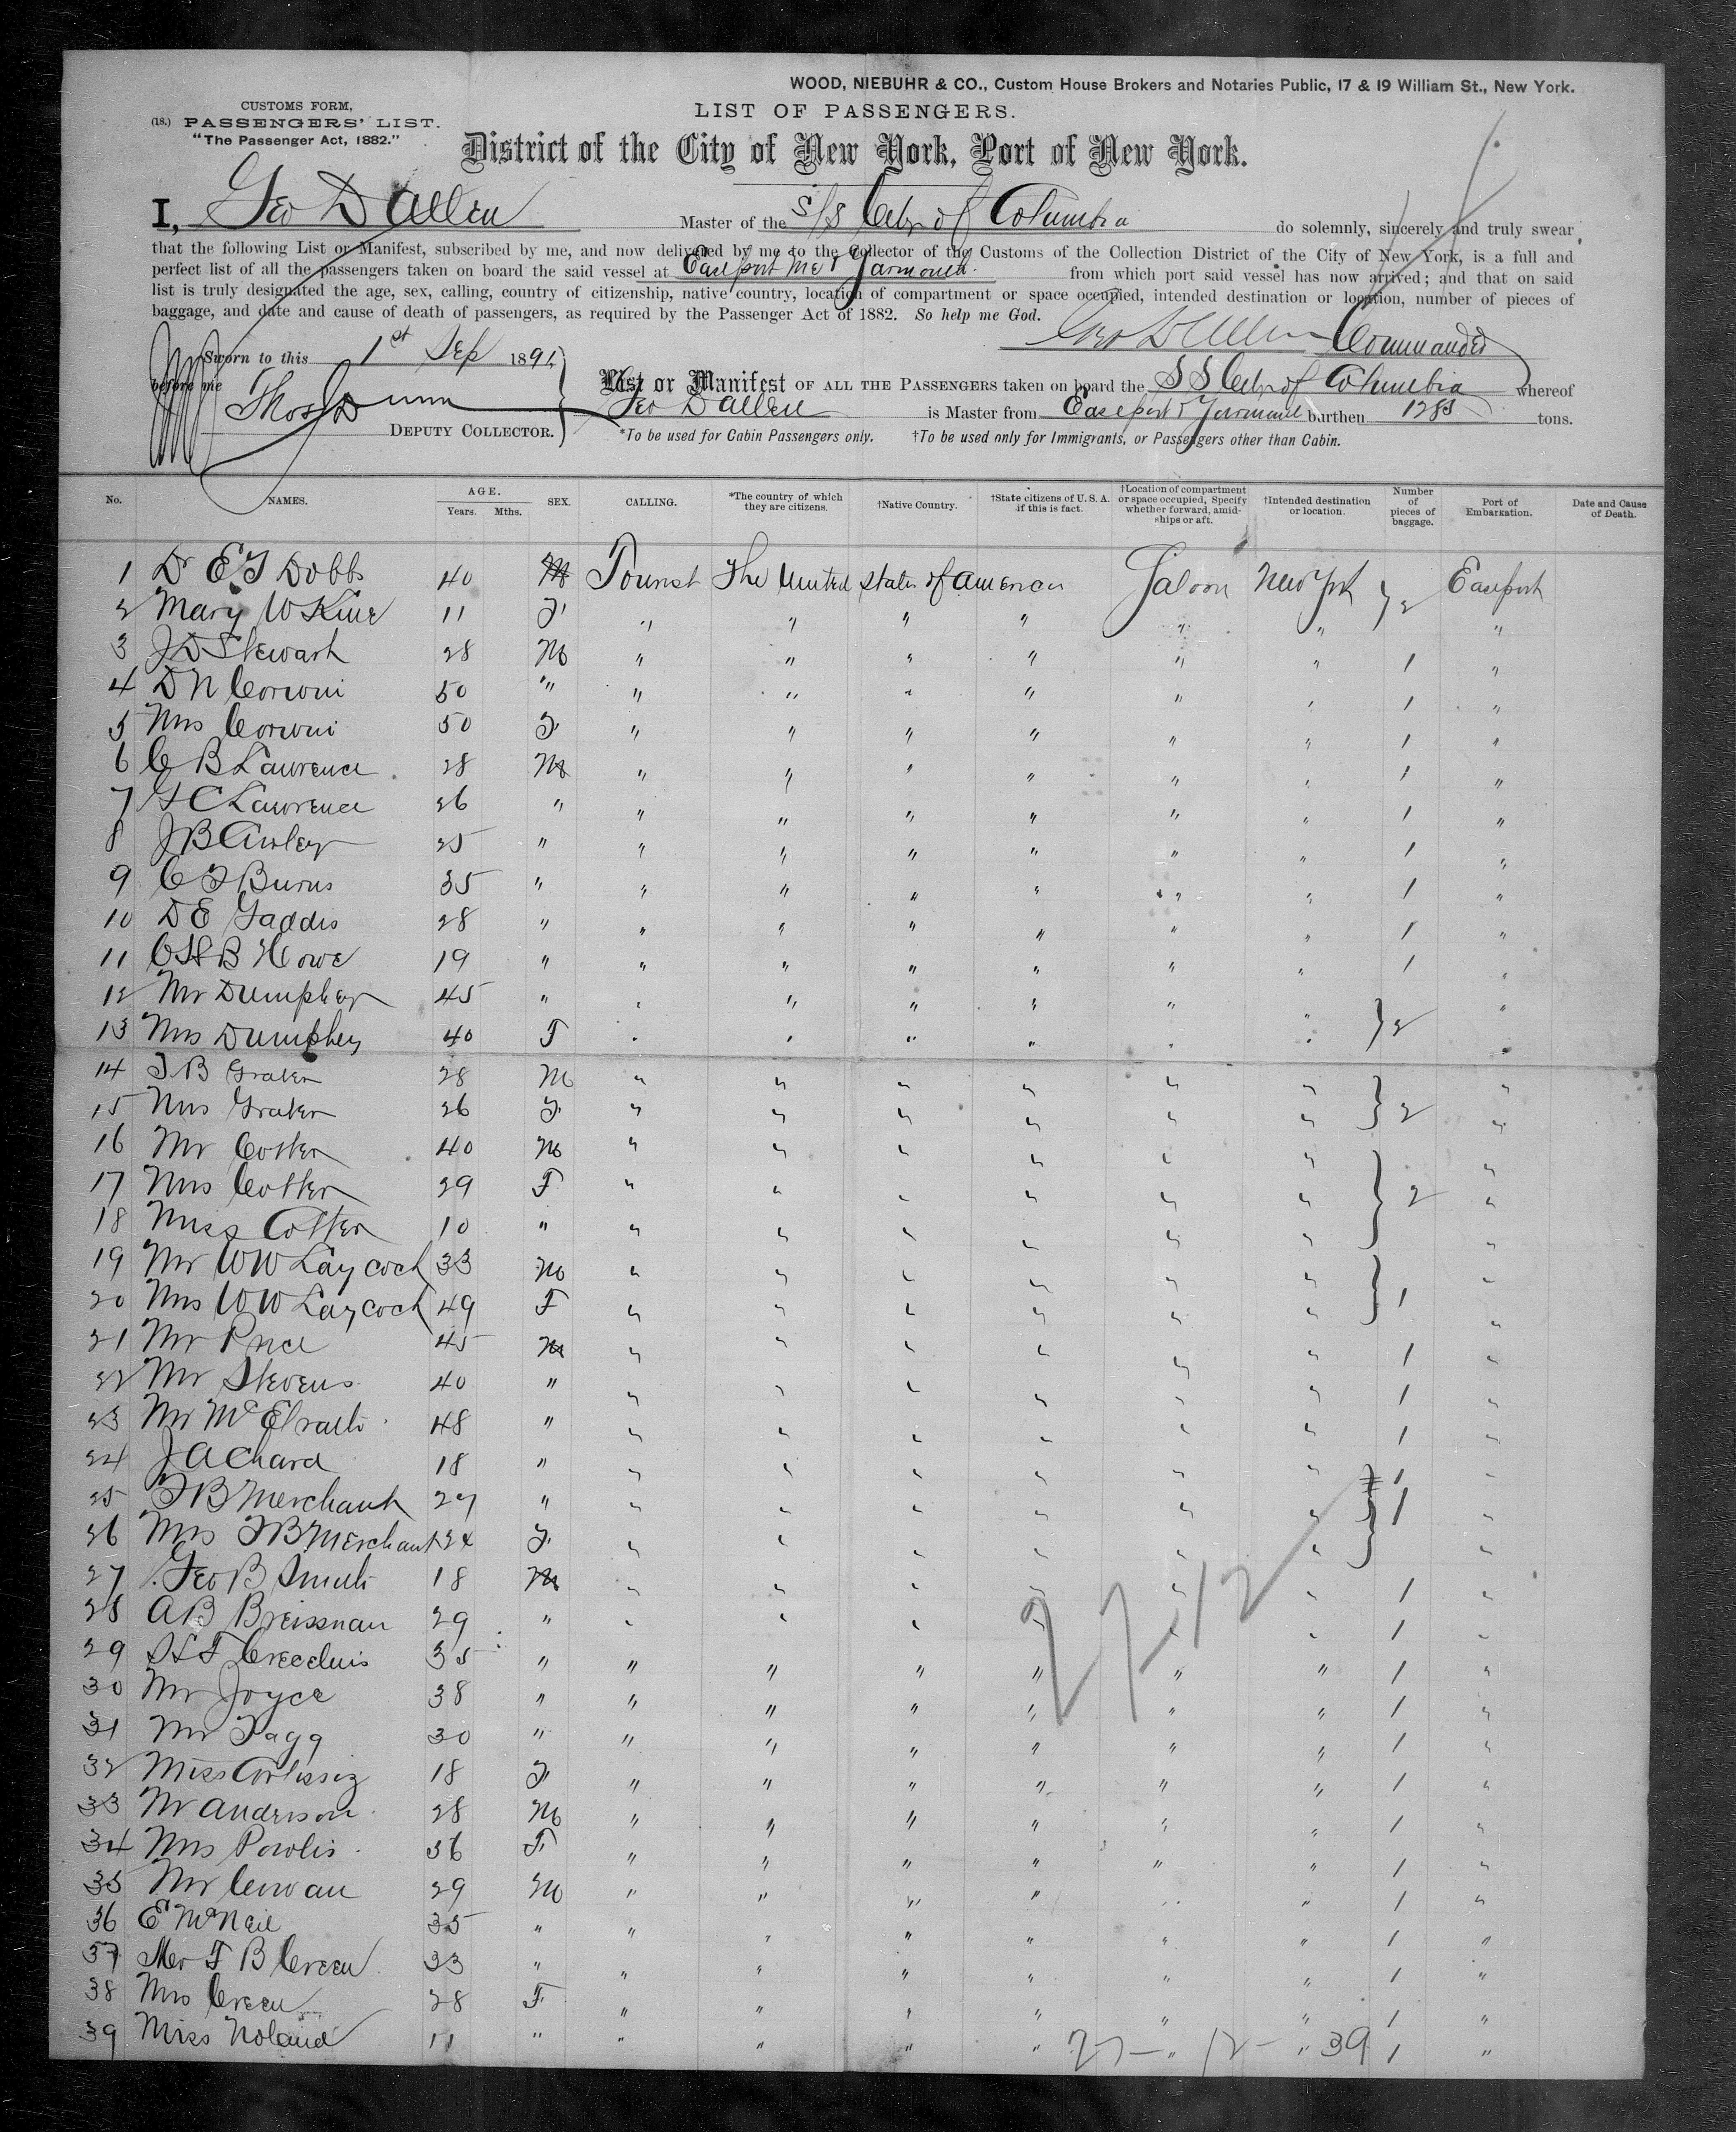 WOOD, NIEBUHR & CO., Custom House Brokers and Notaries Public, 17 & 19 William St., New York.
CUSTOMS FORM,
(18.) PASSENGERS' LIST.
"The Passenger Act, 1882."
LIST OF PASSENGERS.
District of the City of New York, Port of New York.
I, Geo D Allen Master of the S/S City of Columbia do solemnly, sincerely and truly swear
that the following List or Manifest, subscribed by me, and now delivered by me to the Collector of the Customs of the Collection District of the City of New York, is a full and
perfect list of all the passengers taken on board the said vessel at Eastport Me & Yarmouth from which port said vessel has now arrived; and that on said
list is truly designated the age, sex, calling, country of citizenship, native country, location of compartment or space occupied, intended destination or location, number of pieces of
baggage, and date and cause of death of passengers, as required by the Passenger Act of 1882. So help me God.
Geo D Allen Commander
Sworn to this 1st Sep 1891
before me
Thos Dunn
DEPUTY COLLECTOR.
List or Manifest OF ALL THE PASSENGERS taken on board the S S City of Columbia whereof
Geo D Allen is Master from Eastport & Yarmouth burthen 1283 tons.
*To be used for Cabin Passengers only. †To be used only for Immigrants, or Passengers other than Cabin.
No. NAMES. AGE. Years. Mths. SEX. CALLING. *The country of which they are citizens. †Native Country. †State citizens of U. S. A. if this is fact. †Location of compartment or space occupied, Specify whether forward, amidships or aft. †Intended destination or location. Number of pieces of baggage. Port of Embarkation. Date and Cause of Death.
1 Dr E J Dobbs 40 M Tourist The United States of America Saloon New York } 2 Eastport
2 Mary W Kine 11 F " " " " " " "
3 J D Stewart 28 M " " " " " " 1 "
4 D N Corwin 50 " " " " " " " 1 "
5 Mrs Corwin 50 F " " " " " " 1 "
6 C B Lawrence 28 M " " " " " " 1 "
7 G C Lawrence 26 " " " " " " " 1 "
8 J B 25 " " " " " " " 1 "
9 C F Burns 35 " " " " " " " 1 "
10 D E Gaddis 28 " " " " " " " 1 "
11 B Howe 19 " " " " " " " 1 "
12 Mr Dumphey 45 " " " " " " " } 2 "
13 Mrs Dumphey 40 F " " " " " " "
14 J B 28 M " " " " " " } 2 "
15 Mrs 26 F " " " " " " "
16 Mr Cotter 40 M " " " " " " } 2 "
17 Mrs Cotter 29 F " " " " " " "
18 Miss Cotter 10 " " " " " " " "
19 Mr W W Laycock 33 M " " " " " " } 1 "
20 Mrs W W Laycock 49 F " " " " " " "
21 Mr Price 45 M " " " " " " 1 "
22 Mr Stevens 40 " " " " " " " 1 "
23 Mr McElrath 48 " " " " " " " 1 "
24 J A Chard 18 " " " " " " " 1 "
25 F B Merchant 27 " " " " " " " } 1 "
26 Mrs F B Merchant 24 F " " " " " " "
27 Geo B Smith 18 M " " " " " " 1 "
28 A B Breissnan 29 " " " " " " " 1 "
29 35 " " " " " " " 1 "
30 Mr Joyce 38 " " " " " " " 1 "
31 Mr Tagg 30 " " " " " " " 1 "
32 Miss 18 F " " " " " " 1 "
33 Mr Anderson 28 M " " " " " " 1 "
34 Mrs Powlis 36 F " " " " " " 1 "
35 Mr 29 M " " " " " " 1 "
36 E McNeil 35 " " " " " " " 1 "
37 Mr F B Creen 33 " " " " " " " 1 "
38 Mrs Creen 28 F " " " " " " 1 "
39 Miss Noland 11 " " " " " " " 1 "
27-12
27 - 12 - 39